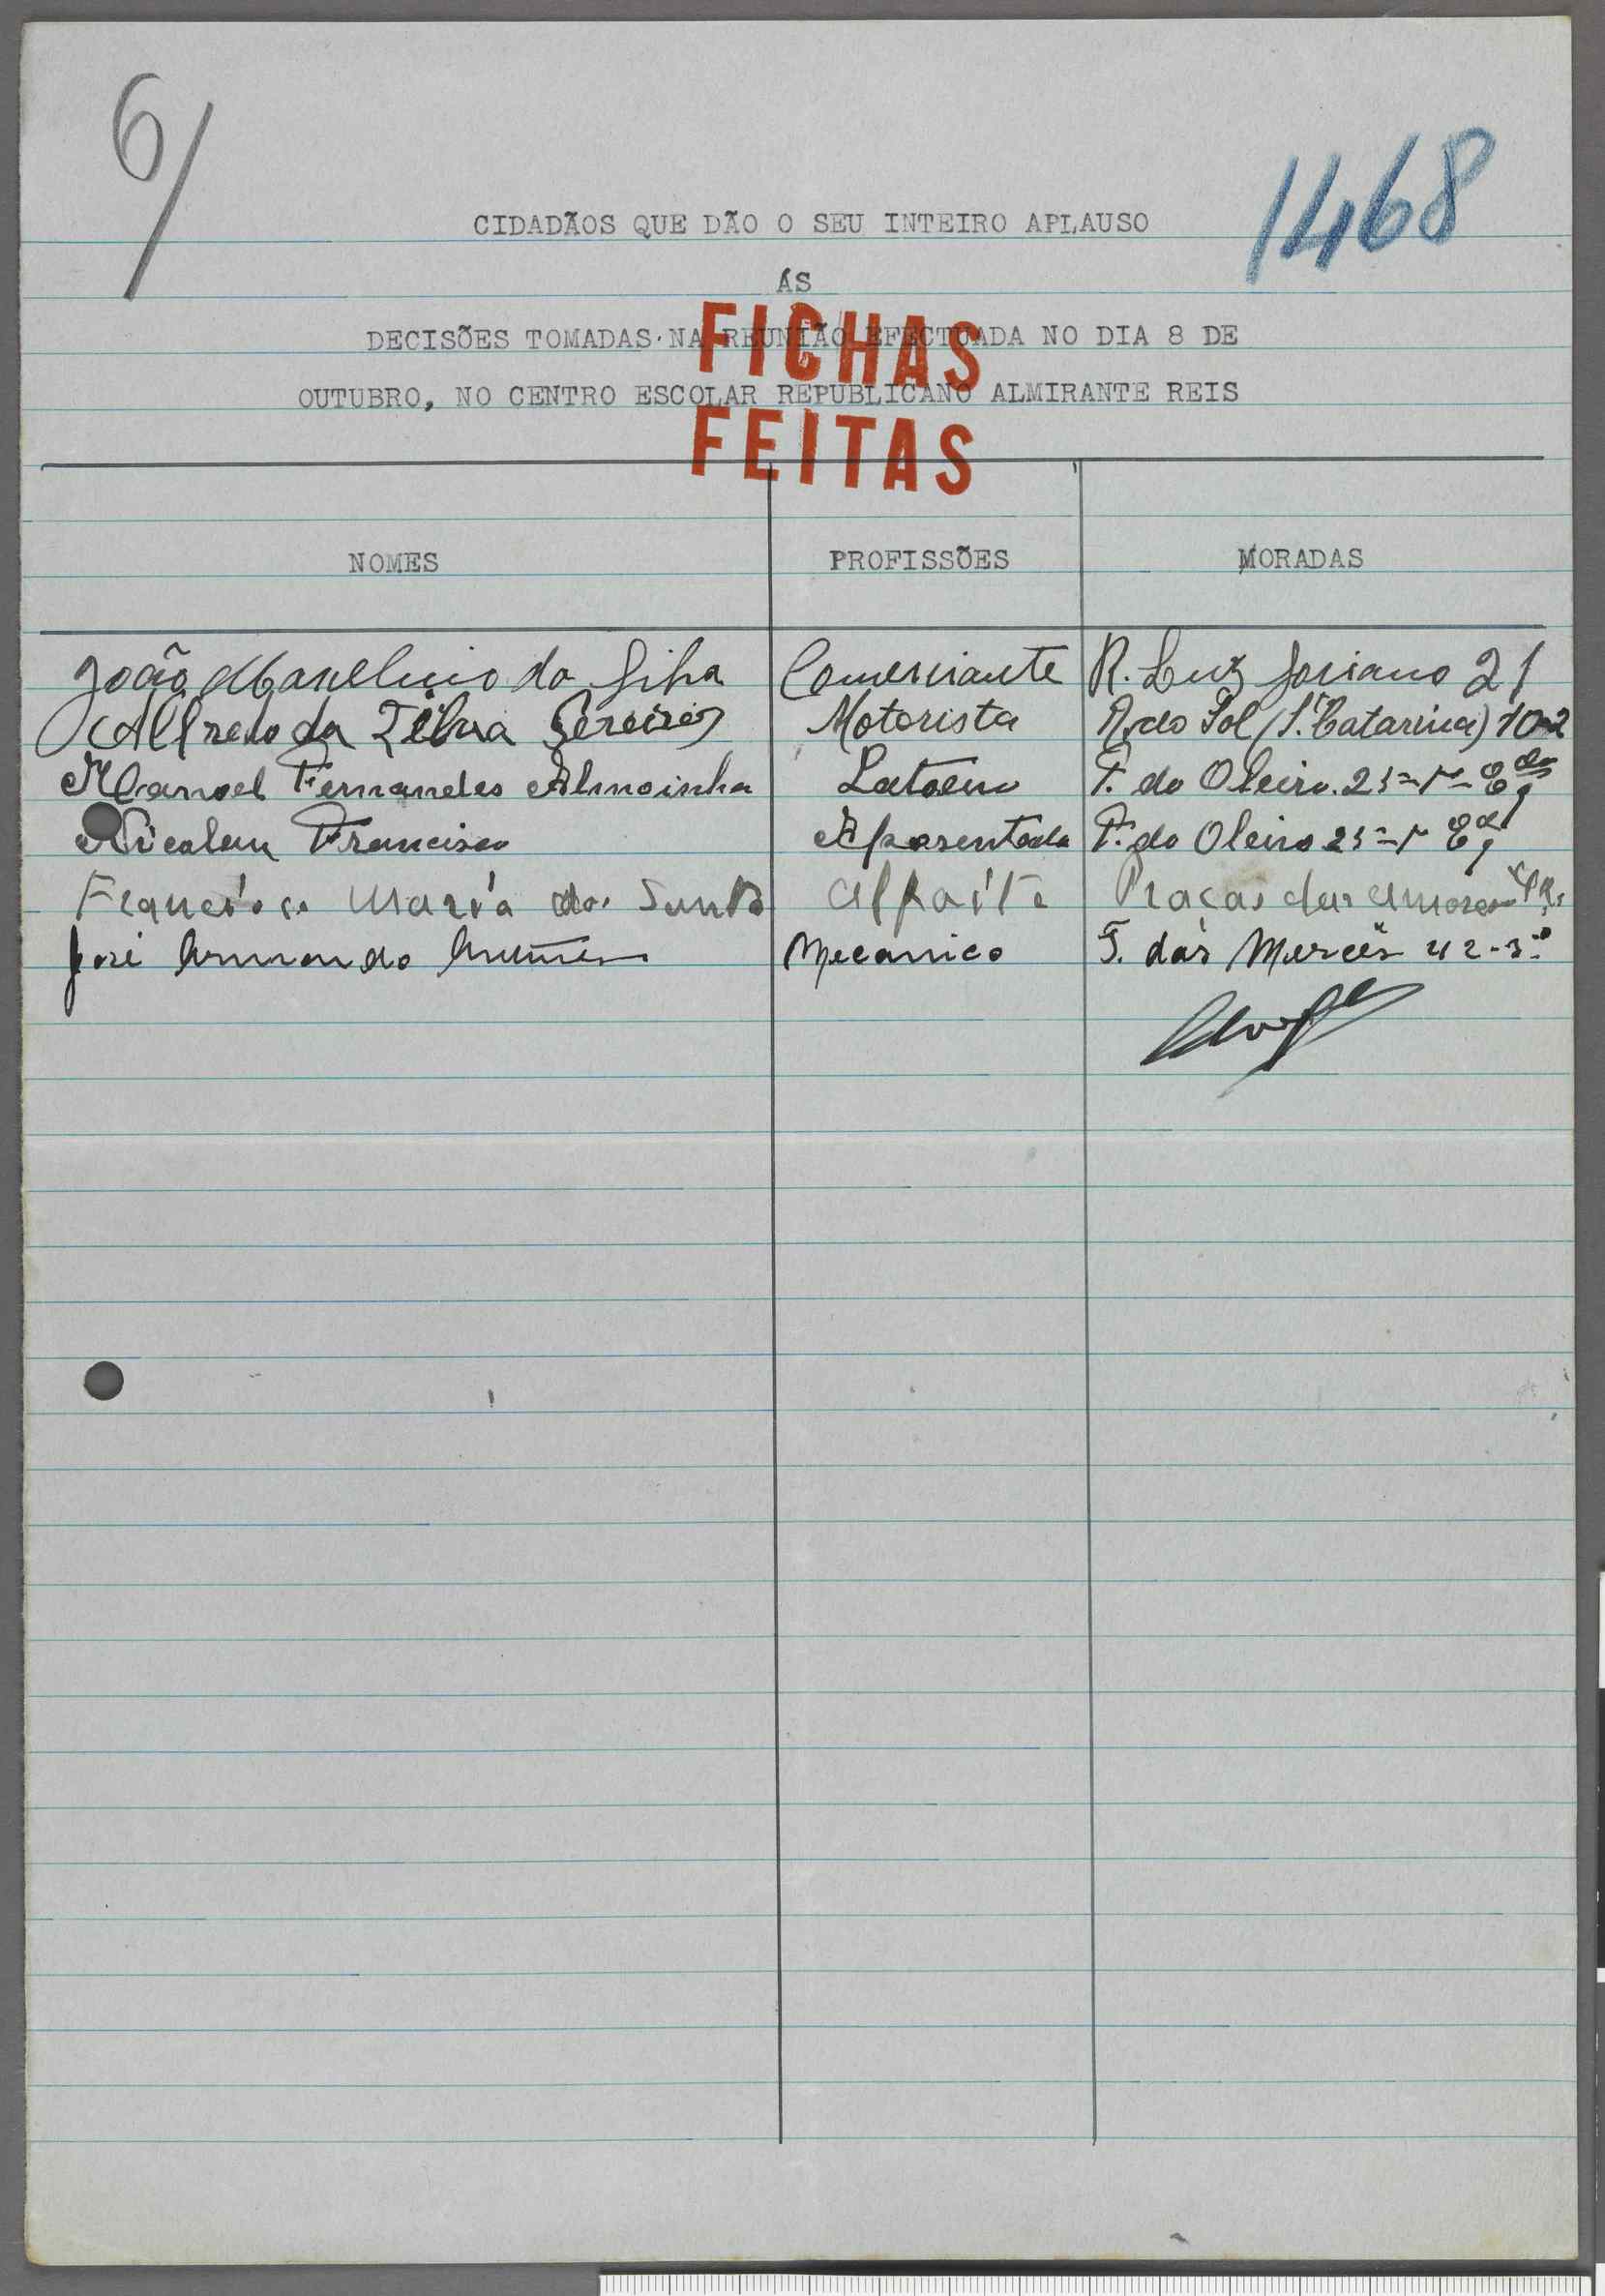 6/
1468
CIDADÃOS QUE DÃO O SEU INTEIRO APLAUSO
ÁS
DECISÕES TOMADAS NA REUNIÃO EFECTUADA NO DIA 8 DE
OUTUBRO, NO CENTRO ESCOLAR REPUBLICANO ALMIRANTE REIS
FICHAS
FEITAS
NOMES PROFISSÕES MORADAS
João Marcelino da Silva Comerciante R. Luz Soriano 21
Alfredo da Silva Motorista R. do Sol (S. Catarina) 10-2
Manoel Fernandes Almoinha Latoeiro T. do Oleiro. 25
Nicolau Francisco Aposentado T. do Oleiro 25
Francisco Maria dos Santos Alfaite Praça das Amoreiras
José Armando Mecanico T. das Mercês 42-3º